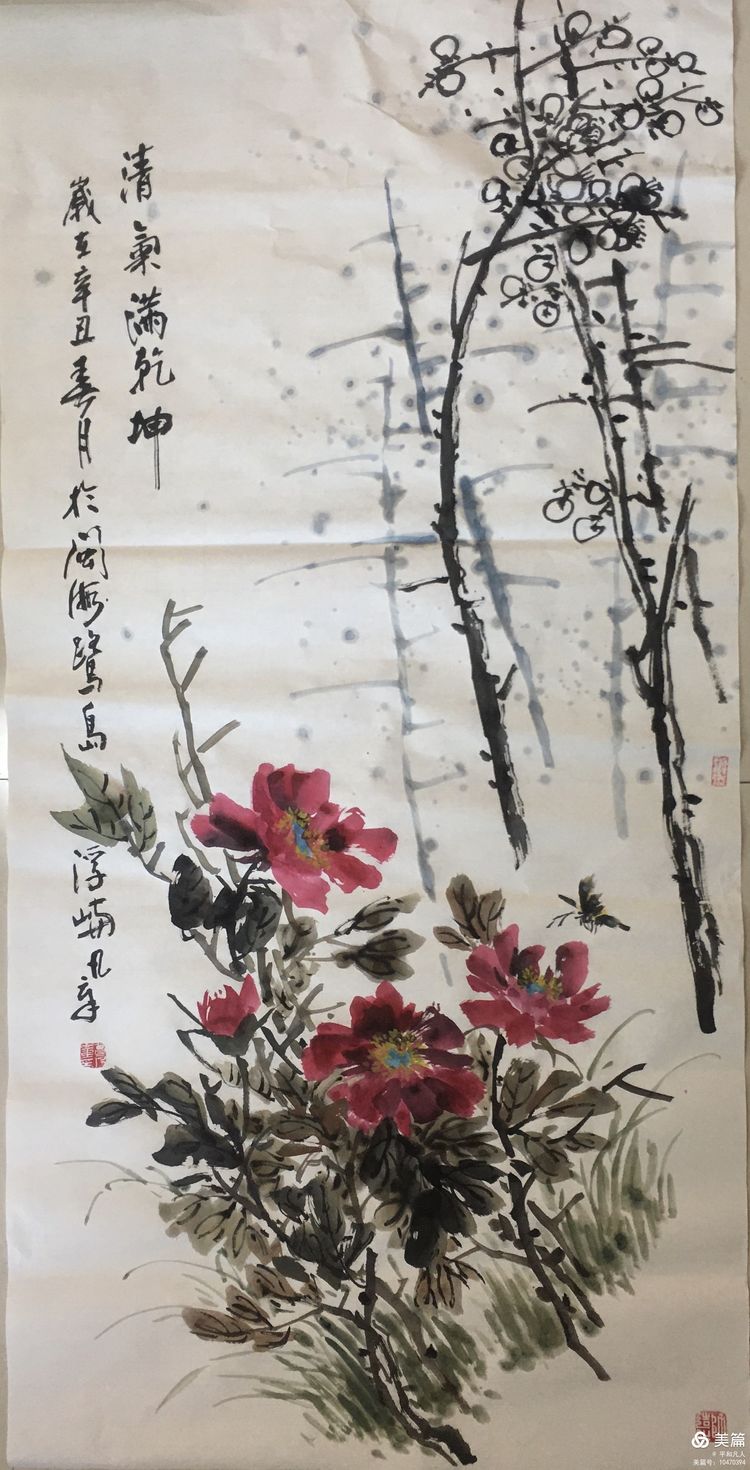 清氣滿乾坤
歲在辛丑春月於閩海鷺島
浮嶼凡辛
美篇
平和凡人
美篇号：10470394